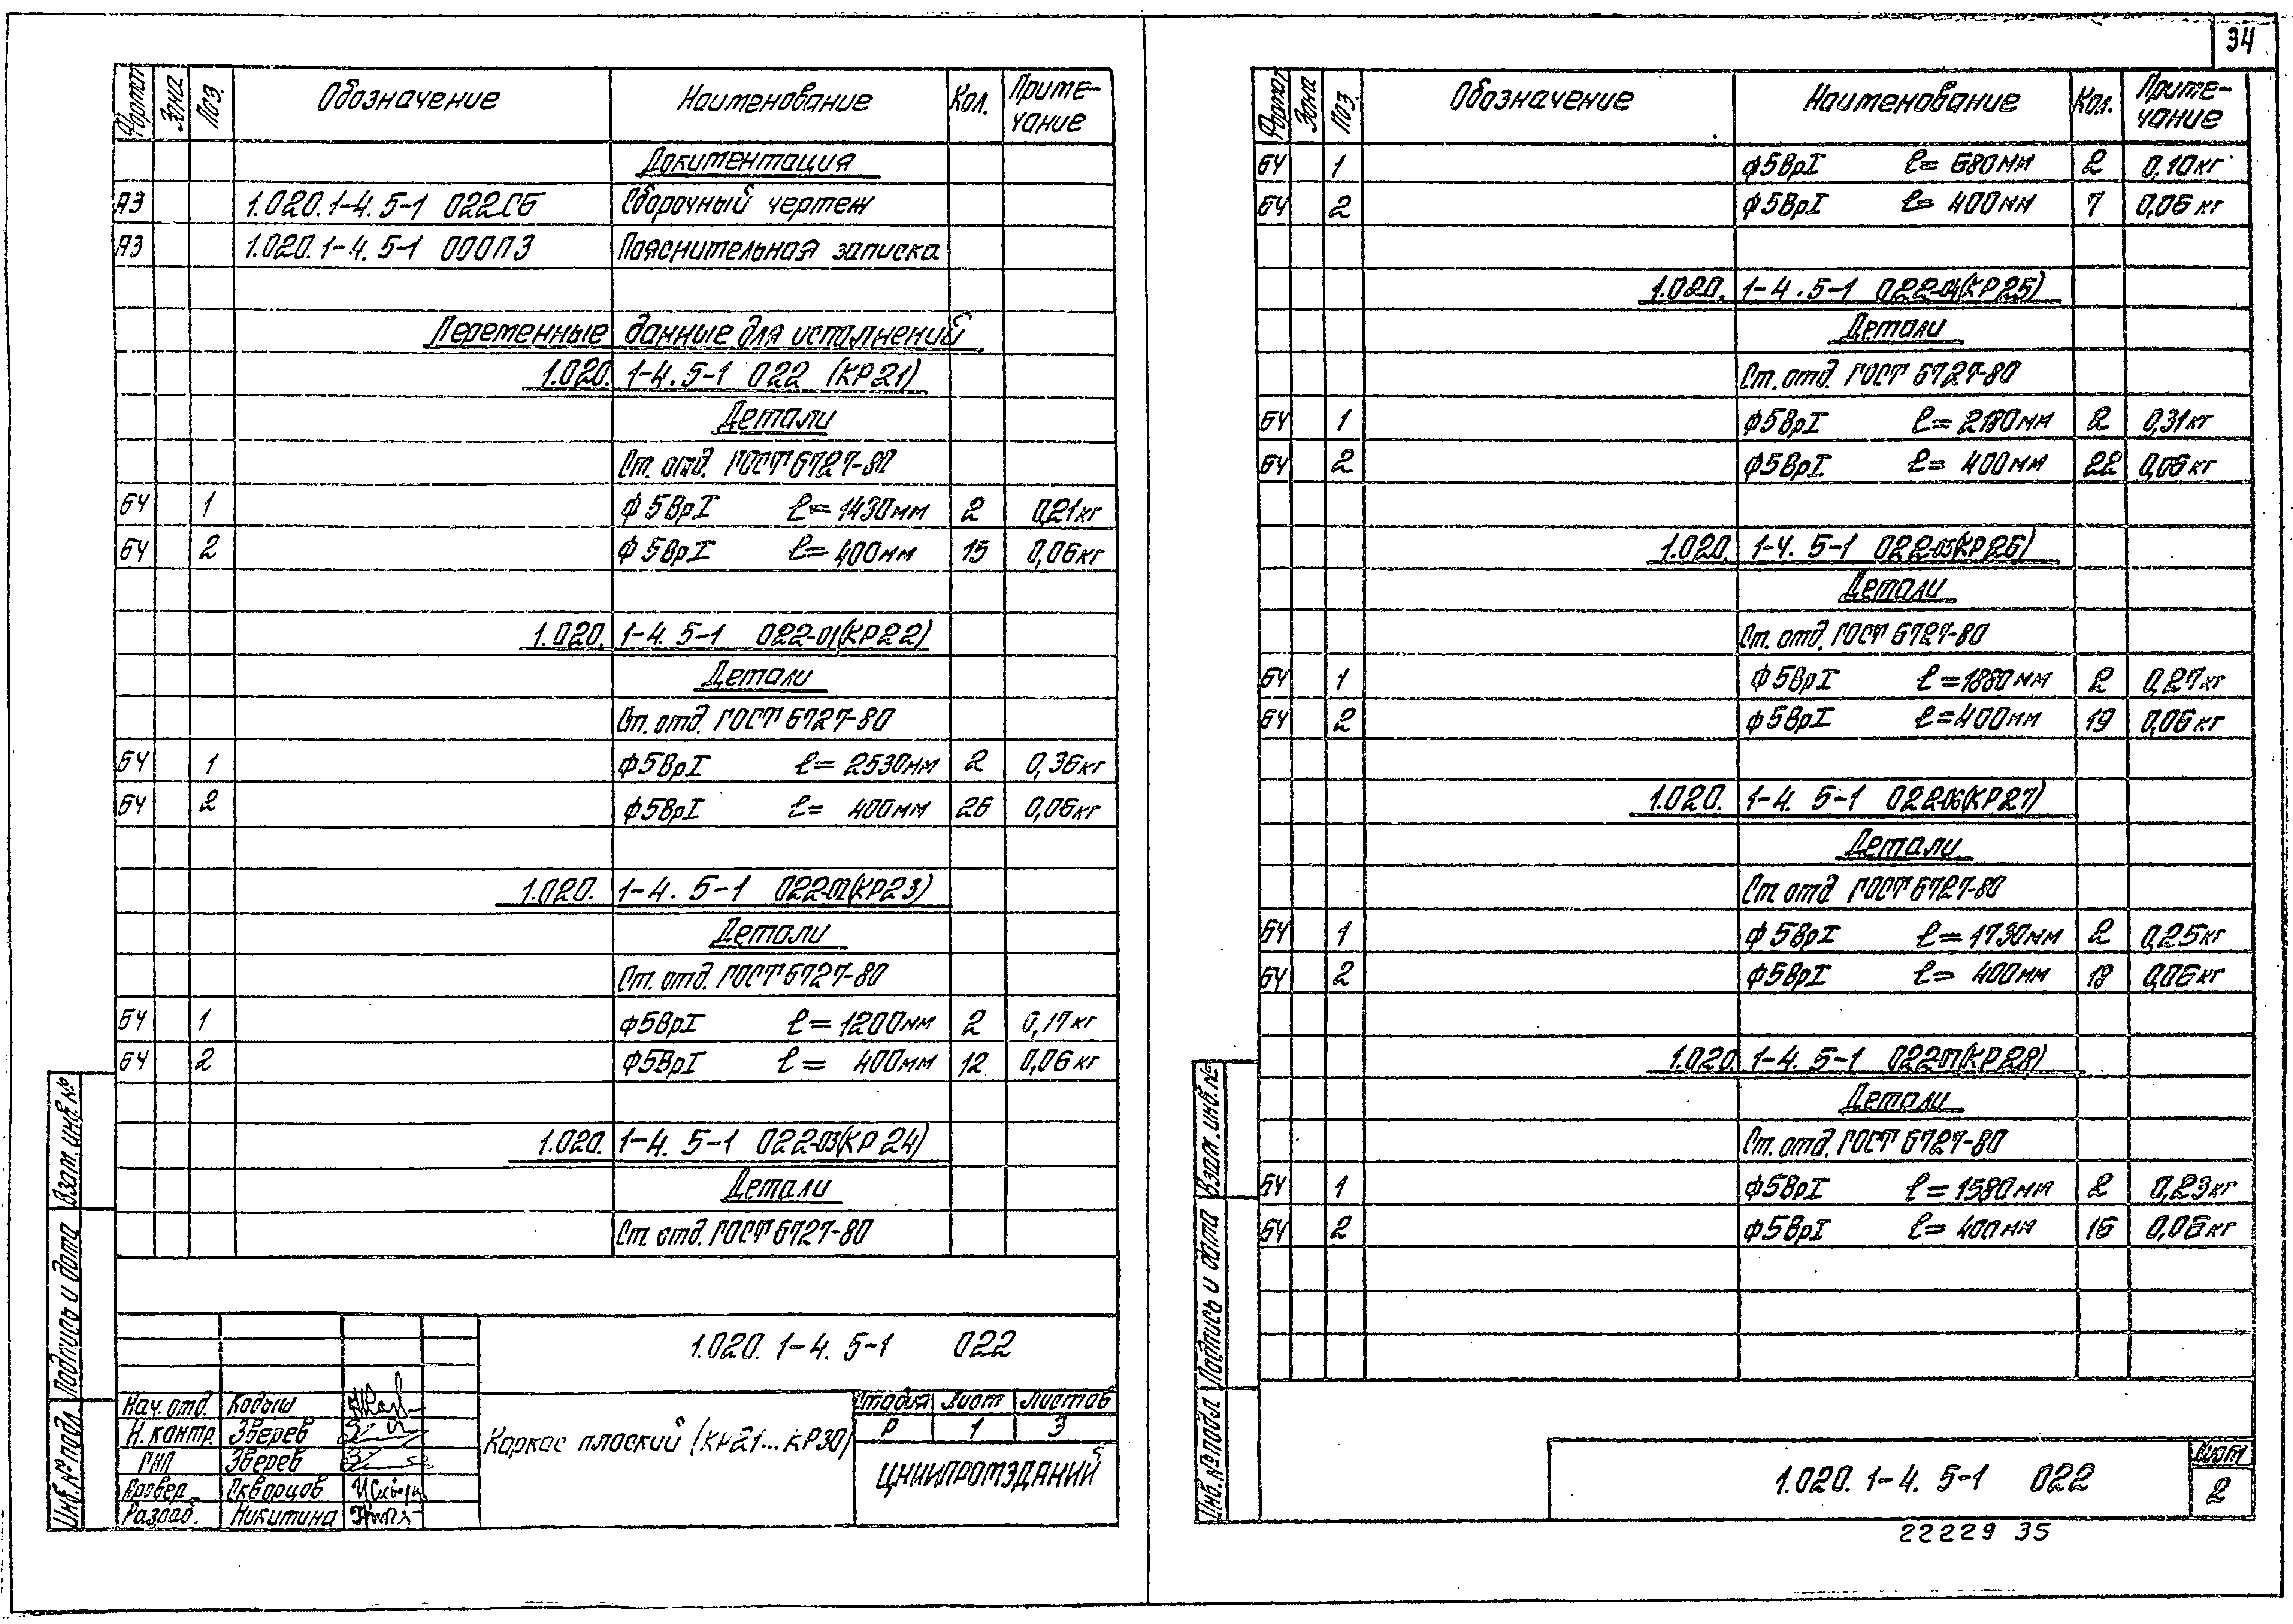 34
Формат Зона Поз. Обозначение Наименование Кол. Приме-
чание
Документация
А3 1.020.1-4.5-1 022СБ Сборочный чертеж
А3 1.020.1-4.5-1 000ПЗ Пояснительная записка
Переменные данные для исполнений
1.020.1-4.5-1 022 (КР21)
Детали
Ст. отд. ГОСТ 6727-80
БЧ 1 Ф5ВрI ℓ=1430мм 2 0,21кг
БЧ 2 Ф5ВрI ℓ=400мм 15 0,06кг
1.020.1-4.5-1 022-01(КР22)
Детали
Ст. отд. ГОСТ 6727-80
БЧ 1 Ф5ВрI ℓ=2530мм 2 0,36кг
БЧ 2 Ф5ВрI ℓ=400мм 26 0,06кг
1.020.1-4.5-1 022-02(КР23)
Детали
Ст. отд. ГОСТ 6727-80
БЧ 1 Ф5ВрI ℓ=1200мм 2 0,17кг
БЧ 2 Ф5ВрI ℓ=400мм 12 0,06кг
1.020.1-4.5-1 022-03(КР24)
Детали
Ст. отд. ГОСТ 6727-80
1.020.1-4.5-1 022
Нач. отд. Кодыш
Н. контр. Зверев
ГИП Зверев
Провер. Скворцов
Разраб. Никитина
Каркас плоский (КР21...КР30)
Стадия Лист Листов
Р 1 3
ЦНИИПРОМЗДАНИЙ
Инв.№ подл. Подпись и дата Взам. инв.№
Формат Зона Поз. Обозначение Наименование Кол. Приме-
чание
БЧ 1 Ф5ВрI ℓ=680мм 2 0,10кг
БЧ 2 Ф5ВрI ℓ=400мм 7 0,06кг
1.020.1-4.5-1 022-04(КР25)
Детали
Ст. отд. ГОСТ 6727-80
БЧ 1 Ф5ВрI ℓ=2180мм 2 0,31кг
БЧ 2 Ф5ВрI ℓ=400мм 22 0,06кг
1.020.1-4.5-1 022-05(КР26)
Детали
Ст. отд. ГОСТ 6727-80
БЧ 1 Ф5ВрI ℓ=1880мм 2 0,27кг
БЧ 2 Ф5ВрI ℓ=400мм 19 0,06кг
1.020.1-4.5-1 022-06(КР27)
Детали
Ст. отд. ГОСТ 6727-80
БЧ 1 Ф5ВрI ℓ=1730мм 2 0,25кг
БЧ 2 Ф5ВрI ℓ=400мм 0,06кг
1.020.1-4.5-1 022-07(КР28)
Детали
Ст. отд. ГОСТ 6727-80
БЧ 1 Ф5ВрI ℓ=1580мм 2 0,23кг
БЧ 2 Ф5ВрI ℓ=400мм 16 0,06кг
Инв.№ подл. Подпись и дата Взам. инв.№
1.020.1-4.5-1 022
Лист
2
22229 35